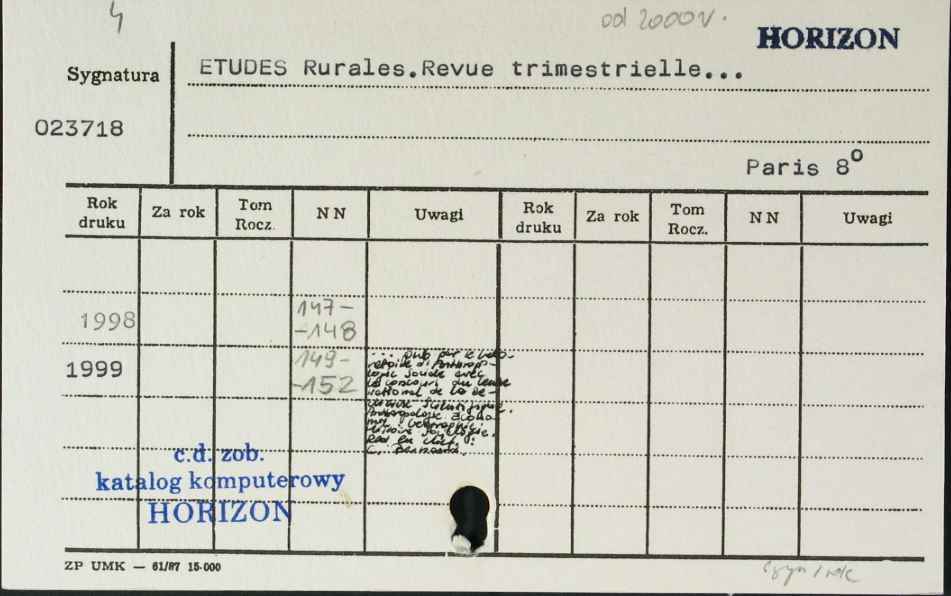 4
od 2000 r.
HORIZON
Sygnatura
ETUDES Rurales.Revue trimestrielle...
023718
Paris 8°
Rok druku Za rok Tom Rocz. NN Uwagi Rok druku Za rok Tom Rocz. NN Uwagi
1998 147-
-148
1999 149-
-152
... Publ par le Labo-
ratoire d'Anthropo-
logie Sociale avec
le concours du Centre
National de la Re-
cherche Scientifique.
Anthropologie Econo-
mie Géographie
Histoire Sociologie.
Red. en chef:
c.d. zob.
katalog komputerowy
HORIZON
ZP UMK — 61/87 15·000